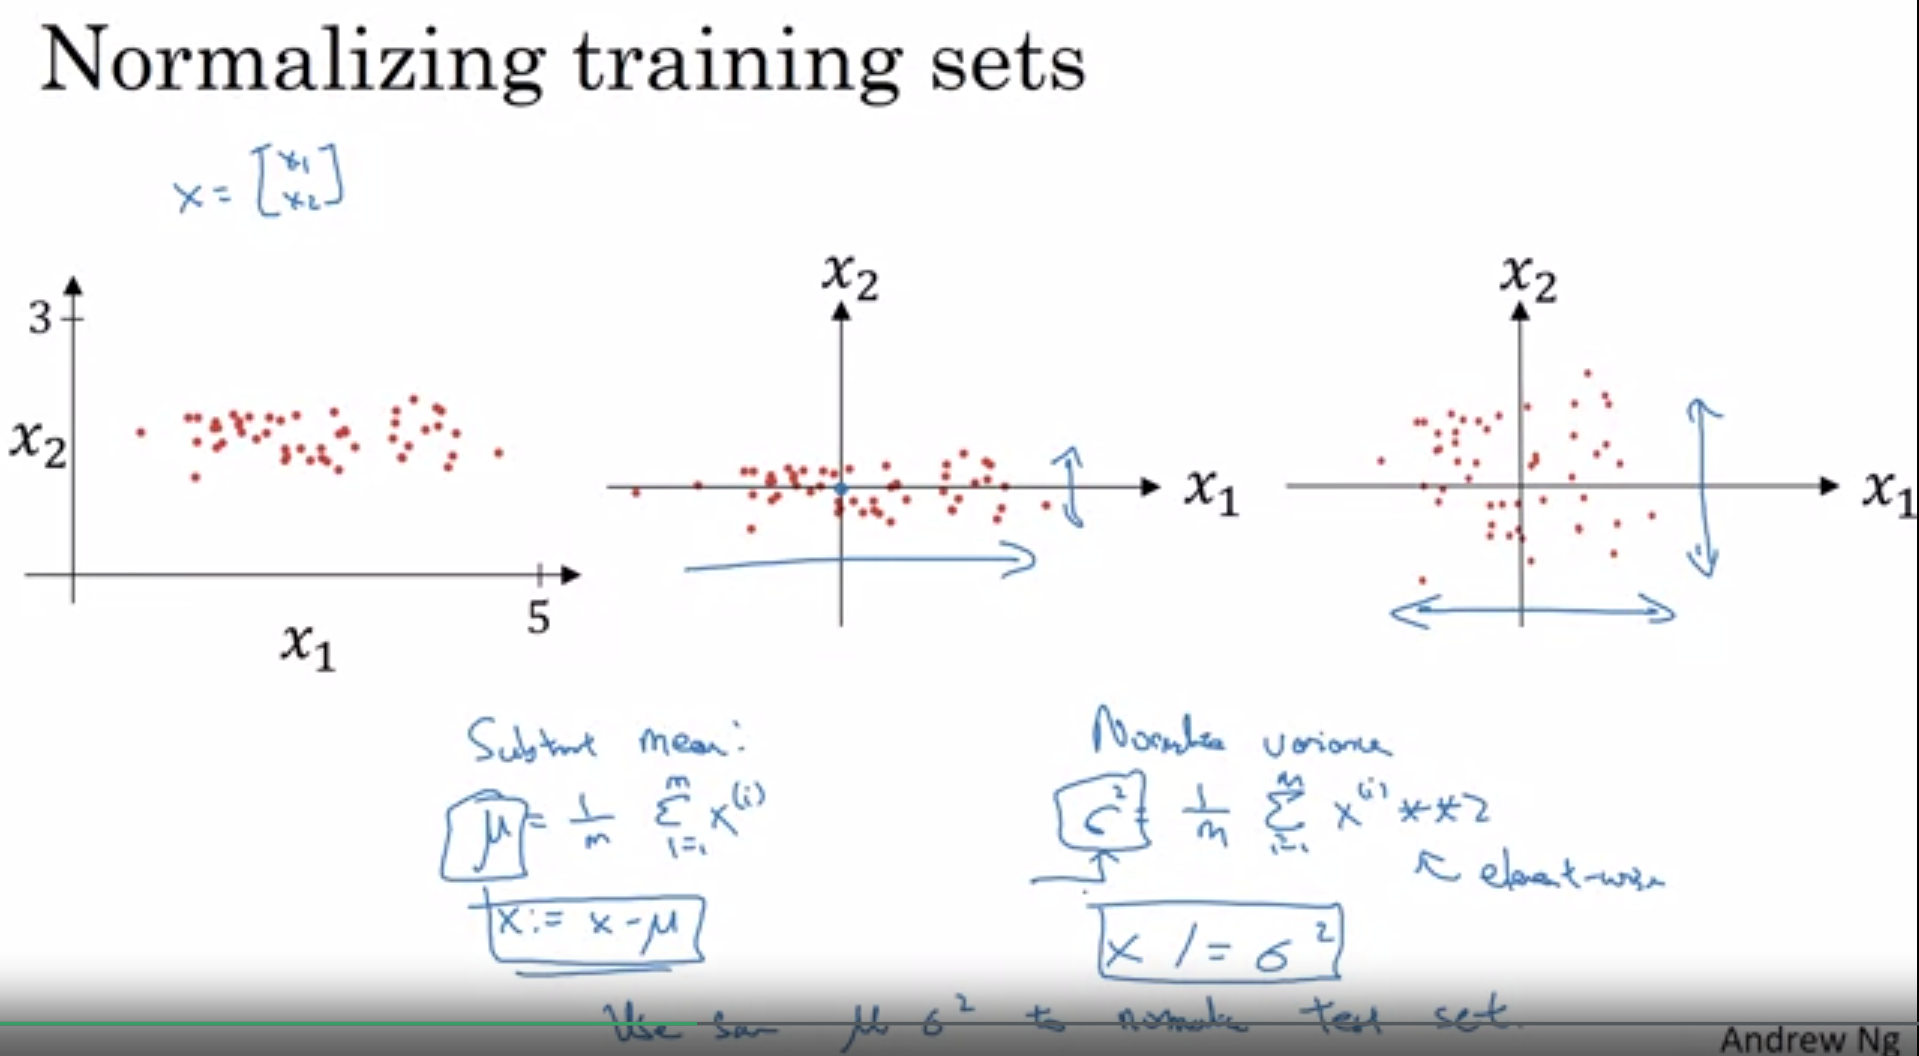 Normalizing training sets
x = [x1
x2]
3
x2
5
x1
x2
x1
x2
x1
Subtract mean:
μ = 1/m Σ_{i=1}^{m} x^(i)
x := x - μ
Normalize variance
σ² = 1/m Σ_{i=1}^{m} x^(i) **2
element-wise
x /= σ²
Use same μ σ² to normalize test set.
Andrew Ng